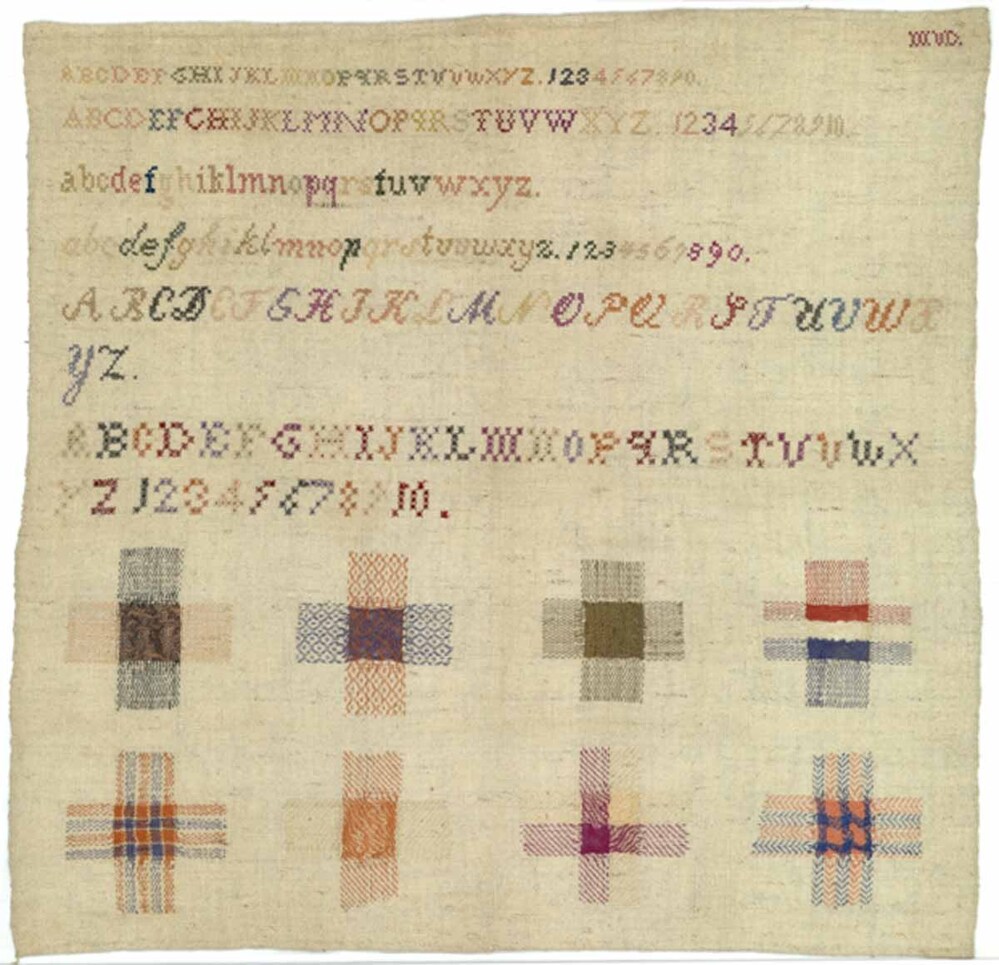 MVD.
ABCDEFGHIJKLMNOPQRSTUVWXYZ.1234567890.
ABCDEFGHIJKLMNOPQRSTUVWXYZ. 12345678910.
abcdefghiklmnopqrstuvwxyz.
abcdefghiklmnopqrstuvwxyz.1234567890.
ABCDEFGHIJKLMNOPQRSTUVWX
YZ.
ABCDEFGHIJKLMNOPQRSTUVWX
YZ 12345678910.